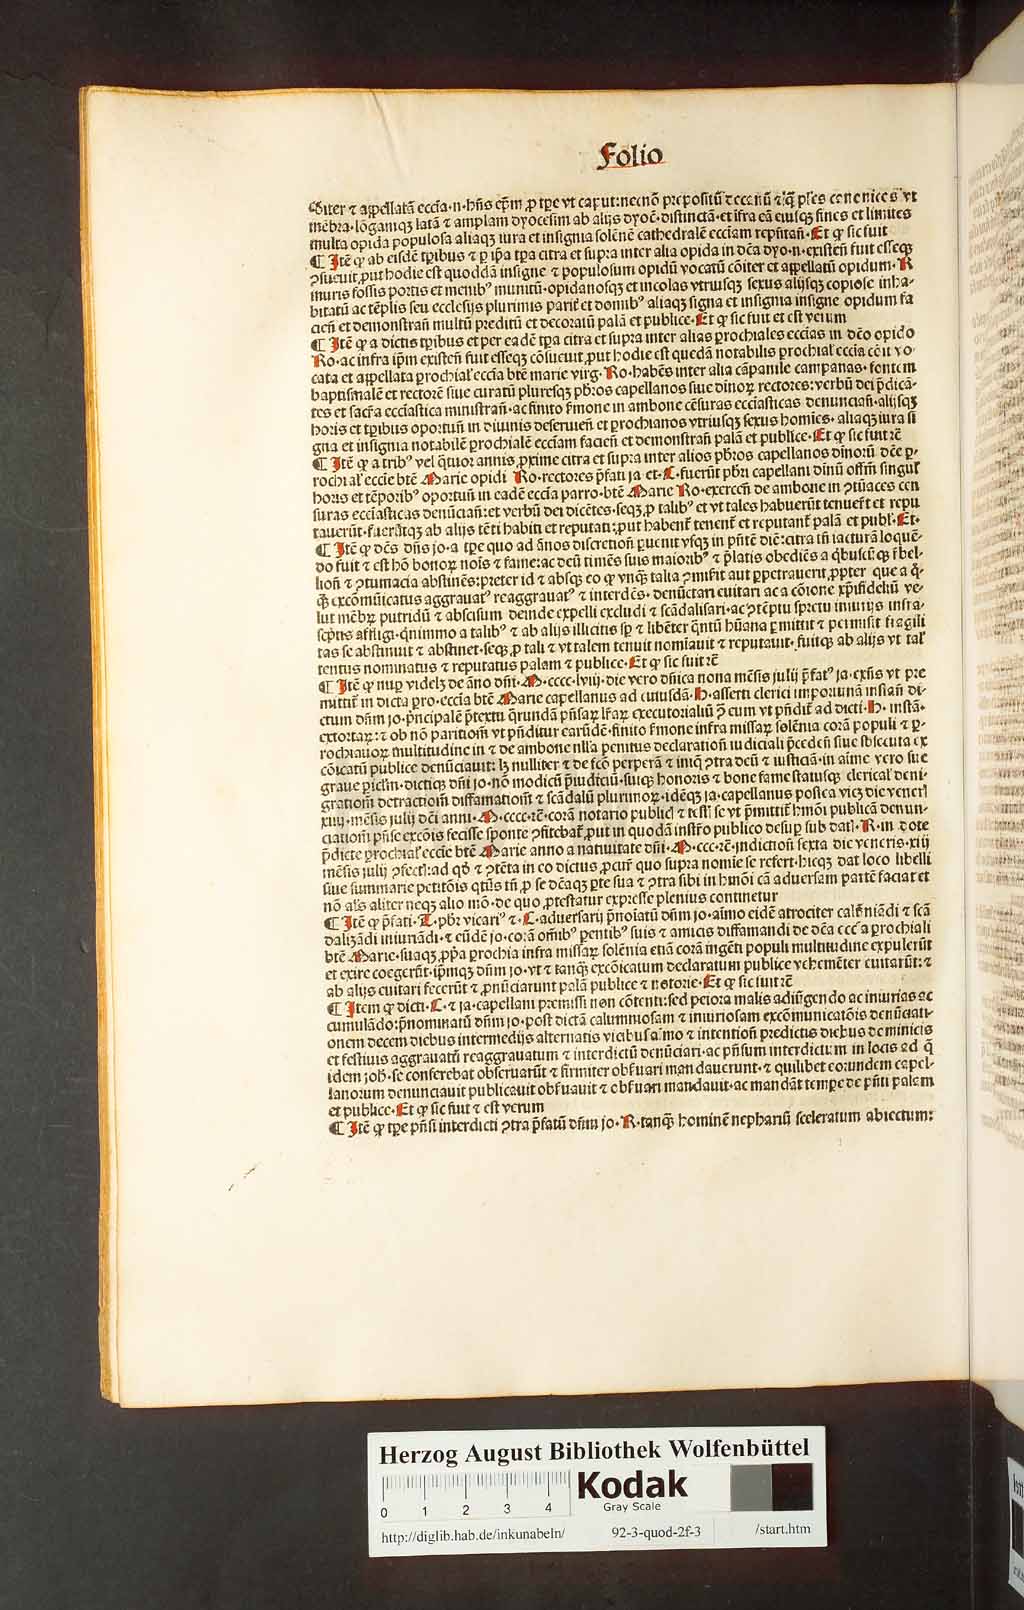 Folio
cōiter ⁊ appellatā eccīa·n·hn̄s ep̄m ꝓ tp̄e vt caput: necnō prepositū decanū ⁊ s canonicos vt
mēbra·lōgamqꝫ latā ⁊ amplam dyocesim ab alijs dyoc̄·distinctā·et īfra eā eiusqꝫ fines et limites
multa opida populosa aliaqꝫ iura et insignia solēnē cathedralē ecciam rep̄ntan̄·Et ꝙ sic fuit
¶ Itē ꝙ ab eisdē tp̄ibus ⁊ ꝑ ip̄a tp̄a citra et supra inter alia opida in dc̄a dyo·n·existen̄ fuit esseqꝫ
ꝯsueuit ꝓut hodie est quoddā insigne ⁊ populosum opidū vocatū cōiter et appellatū opidum·R
muris fossis portis et menibꝰ munitū·opidanosqꝫ et incolas vtriusqꝫ sexus alijsqꝫ copiose inha-
bitatū ac tēplis seu ecclesijs plurimis parit̄ et domibꝰ aliaqꝫ signa et insignia insigne opidum fa
cien̄ et demonstran̄ multū preditū et decoratū palā et publice·Et ꝙ sic fuit et est verum
¶ Itē ꝙ a dictis tp̄ibus et per eadē tp̄a citra et supra inter alias ꝑrochiales eccias in dc̄o opido
Ro·ac infra ip̄m existen̄ fuit esseqꝫ cōsueuit ꝓut hodie est quedā notabilis ꝑrochial̄ eccia cōit vo-
cata et appellata ꝑrochial̄ eccia btē marie virg·Ro·habēs inter alia cāpanile campanas·fontem
baptismalē et rectorē siue curatū pluresqꝫ pb̄ros capellanos siue dinoꝝ rectores: verbū dei p̄dicā-
tes et sacr̄a ecciastica ministran̄·ac finito s̄mone in ambone cēsuras ecciasticas denuncian̄·alijsqꝫ
horis et tp̄ibus oportun̄ in diuinis deseruien̄ et ꝑrochianos vtriusqꝫ sexus homies·aliaqꝫ iura si
gna et insignia notabilē ꝑrochialē ecciam facien̄ et demonstran̄ palā et publice·Et ꝙ sic fuit ꝛc̄
¶ Itē ꝙ a tribꝰ vel q̄tuor annis ꝓxime citra et supra inter alios pb̄ros capellanos dinorū dc̄e ꝑ-
rochial̄ eccie btē Marie opidi Ro·rectores p̄fati ja·et·L·fuerūt pb̄ri capellani dinū offm̄ singul̄
horis et tēporibꝰ oportun̄ in eadē eccia parro·btē Marie Ro·exercen̄ de ambone in ꝯtūaces cen
suras ecciasticas denūcian̄: et verbū dei dicētes·seqꝫ ꝓ talibꝰ et vt tales habuerūt tenuer̄t et repu
tauerūt·fuerūtqꝫ ab alijs tēti habiti et reputan: ꝓut habent̄ tenent̄ et reputant̄ palā et publ̄·Et·
¶ Itē ꝙ dc̄s dn̄s jo·a tp̄e quo ad ānos discretion̄ ꝑuenit vsqꝫ in pn̄tē diē: citra tn̄ iacturā loquē-
do fuit ⁊ est hō bonoꝝ nois ⁊ fame: ac deū timēs suis maioribꝰ ⁊ p̄latis obediēs a q̄buscūqꝫ rebel-
lion̄ ⁊ ꝯtumacia abstinēs: preter id ⁊ absqꝫ eo ꝙ vnqꝫ talia ꝯmisit aut ꝑpetrauerit ꝓpter que a q̄-
qꝫ excōmūicatus aggrauatꝰ reaggrauatꝰ ⁊ interdc̄s·denūctari euitari ac a cōione xp̄ifideliū ve-
lut mēbꝝ putridū ⁊ abscisum deinde expelli excludi ⁊ scādalisari·ac ꝯtēptu spretu iniurijs infra-
sc̄ptis affligi·q̄nimmo a talibꝰ ⁊ ab alijs illicitis sp̄ ⁊ libēter q̄ntū hūana ꝑmittit ⁊ permisit fragili
tas se abstinuit ⁊ abstinet·seqꝫ ꝓ tali ⁊ vt talem tenuit nomīauit ⁊ reputauit·fuitqꝫ ab alijs vt tal̄
tentus nominatus ⁊ reputatus palam ⁊ publice·Et ꝙ sic fuit ꝛc̄
¶ Itē ꝙ nuꝑ videlꝫ de āno dn̄i·M·cccc·lviij·die vero dn̄ica nona mēsis julij p̄fatꝰ ja·exn̄s vt pre
mittit̄ in dicta ꝑro·eccia btē Marie capellanus ad cuiusdā·H·asserti clerici importunā instan̄ di-
ctum dn̄m jo·p̄ncipalē p̄textu q̄rundā pn̄saꝝ lr̄aꝝ executorialiū ꝯ eum vt pn̄dit̄ ad dicti·H·instā-
extortaꝝ: ⁊ ob nō paritiom̄ vt pn̄ditur earūdē·finito s̄mone infra missaꝝ solēnia corā populi ⁊ ꝑ-
rochianoꝝ multitudine in ⁊ de ambone nlla penitus declaration̄ iudiciali p̄ceden̄ siue sbsecuta ex
cōicatū publice denūciauit: lꝫ nulliter ⁊ de fcō perperā ⁊ iniq̄ ꝯtra deū ⁊ iusticiā·in aime vero sue
graue piclm̄·dictiqꝫ dn̄i jo·nō modicū p̄iudiciū·suiqꝫ honoris ⁊ bone fame statusqꝫ clerical̄ deni-
gratiom̄ detractiom̄ diffamatiom̄ ⁊ scādalū plurimoꝝ·idēqꝫ ja·capellanus postea vicꝫ die venerl̄
xiiij·mēsis julij dc̄i anni·M·cccc·ꝛc̄·corā notario publicꝭ ⁊ testi se vt p̄mittit̄ hmōi publicā denun-
ciatiom̄ pn̄se excōis fecisse sponte ꝯfitebat̄ ꝓut in quodā instr̄o publico desuꝑ sub dat·R·in dote
p̄dicte ꝑrochial̄ eccie btē Marie anno a natiuitate dn̄i·M·cccc·ꝛc̄·jndiction̄ sexta die veneris·xiij
mēsis julij ꝯfect̄: ad qd̄ ⁊ ꝯtēta in eo dictus ꝓcur̄ quo supra nomie se refert·hicqꝫ dat loco libelli
siue summarie petitōis qtūs tn̄ ꝓ se dēaqꝫ ꝑte sua ⁊ ꝯtra sibi in hmōi cā aduersam partē faciat et
nō als̄ aliter neqꝫ alio mō·de quo ꝓtestatur expresse plenius continetur
¶ Itē ꝙ p̄fati·L·pbr̄ vicariꝰ ⁊·L·aduersarij p̄noiatū dn̄m jo·aimo eidē atrociter calūniādi ⁊ scā
dalizādi iniuriādi·⁊ eūdē jo·corā om̄ibꝰ ꝑentibꝰ suis ⁊ amicis diffamandi de dc̄a ecc̄a ꝑrochiali
btē Marie·suaqꝫ ꝓpa ꝑrochia infra missaꝝ solēnia etiā corā ingēti populi multitudine expulerūt
et exire coegerūt·ip̄mqꝫ dn̄m jo·vt ⁊ tanqꝫ excōicatum declaratum publice vehemēter euitarūt: ⁊
ab alijs euitari fecerūt ⁊ ꝓnūciarunt palā publice ⁊ notorie·Et ꝙ sic fuit ꝛc̄
¶ Item ꝙ dicti·L·⁊ ja·capellani premissi non cōtenti: sed peiora malis adiūgendo ac iniurias ac
cumulādo: p̄nominatū dn̄m jo·post dictā calumniosam ⁊ iniuriosam excōmunicatōis denūciati-
onem decem diebus intermedijs alternatis vicibus aimo ⁊ intention̄ predictis diebus dominicis
et festiuis aggrauatū reaggrauatum ⁊ interdictū denūciari·ac pn̄sum interdictum in locis ad q̄
idem joh̄·se conferebat obseruarūt ⁊ firmiter obs̄uari mandauerunt·⁊ quilibet eorundem capel-
lanorum denunciauit publicauit obs̄uauit ⁊ obs̄uari mandauit·ac mandāt tempe de pn̄ti palam
et publice·Et ꝙ sic fuit ⁊ est verum
¶ Itē ꝙ tp̄e pn̄si interdicti ꝯtra p̄fatū dn̄m jo·R·tanqꝫ hominē nephariū sceleratum abiectum:
Herzog August Bibliothek Wolfenbüttel
0 1 2 3 4
Kodak
Gray Scale
http://diglib.hab.de/inkunabeln/ 92-3-quod-2f-3 /start.htm